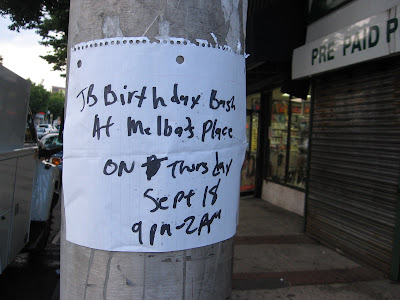 JB Birthday Bash
At Melba's Place
ON Thursday
Sept 18
9pm-2AM
PRE PAID P